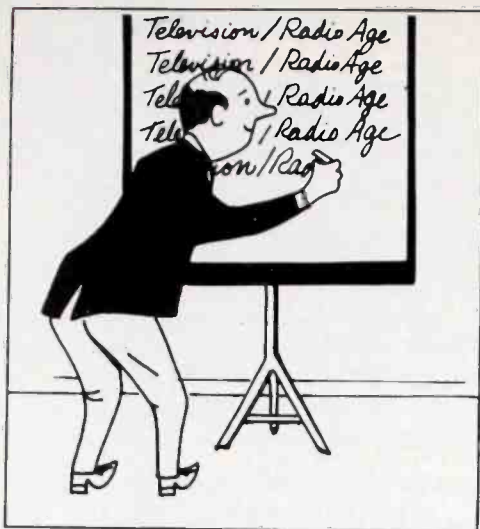 Television / Radio Age
Television / Radio Age
Tele / Radio Age
Tele / Radio Age
ion / Rad